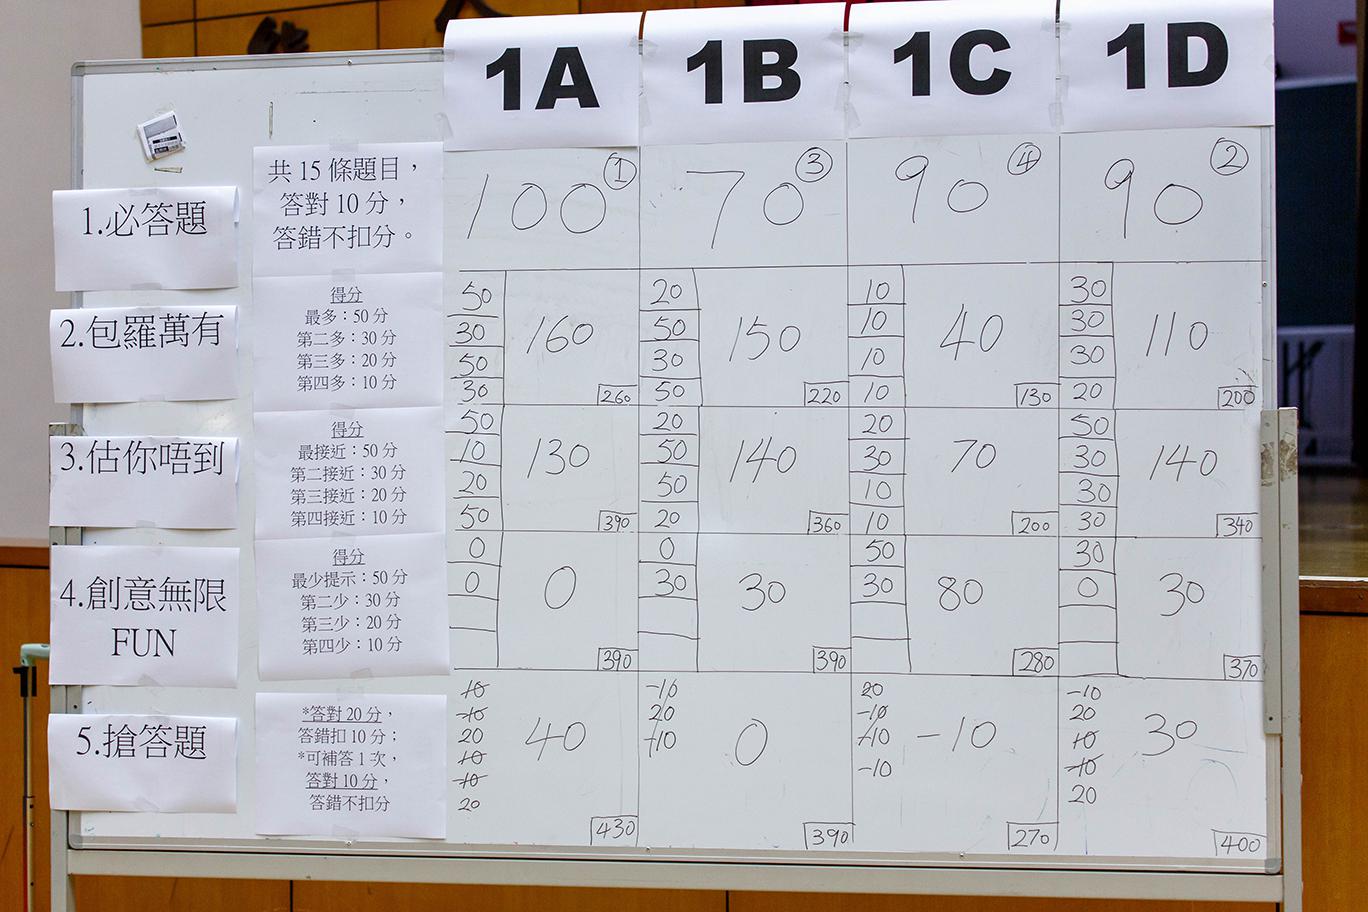 1A 1B 1C 1D
1.必答題
共 15 條題目，
答對 10 分，
答錯不扣分。
100 ① 70 ③ 90 ④ 90 ②
2.包羅萬有
得分
最多：50 分
第二多：30 分
第三多：20 分
第四多：10 分
50
30
50
30
160
260
20
50
30
50
150
220
10
10
10
10
40
130
30
30
30
20
110
200
3.估你唔到
得分
最接近：50 分
第二接近：30 分
第三接近：20 分
第四接近：10 分
50
10
20
50
130
390
20
50
50
20
140
360
20
30
10
10
70
200
50
30
30
30
140
340
4.創意無限
FUN
得分
最少提示：50 分
第二少：30 分
第三少：20 分
第四少：10 分
0
0
0
390
0
30
30
390
50
30
80
280
30
0
30
370
5.搶答題
*答對 20 分，
答錯扣 10 分；
*可補答 1 次，
答對 10 分，
答錯不扣分
10
-10
20
10
-10
20
40
430
-10
20
-10
0
390
20
-10
-10
-10
-10
270
-10
20
10
-10
20
30
400